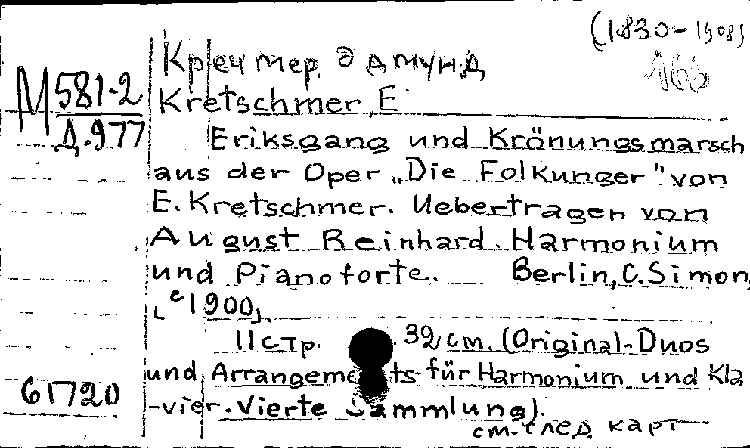 (1830-1908)
Кречмер Эдмунд
166
М 581-2
Д.977
Kretschmer E
Eriksgang und Krönungsmarsch
aus der Oper „Die Folkunger" von
E. Kretschmer. Uebertragen von
August Reinhard. Harmonium
und Pianoforte. Berlin, C. Simon,
[c 1900].
11 стр. 32 см. (Original-Duos
und Arrangements für Harmonium und Kla
-vier. Vierte Sammlung).
61720
см. след карт